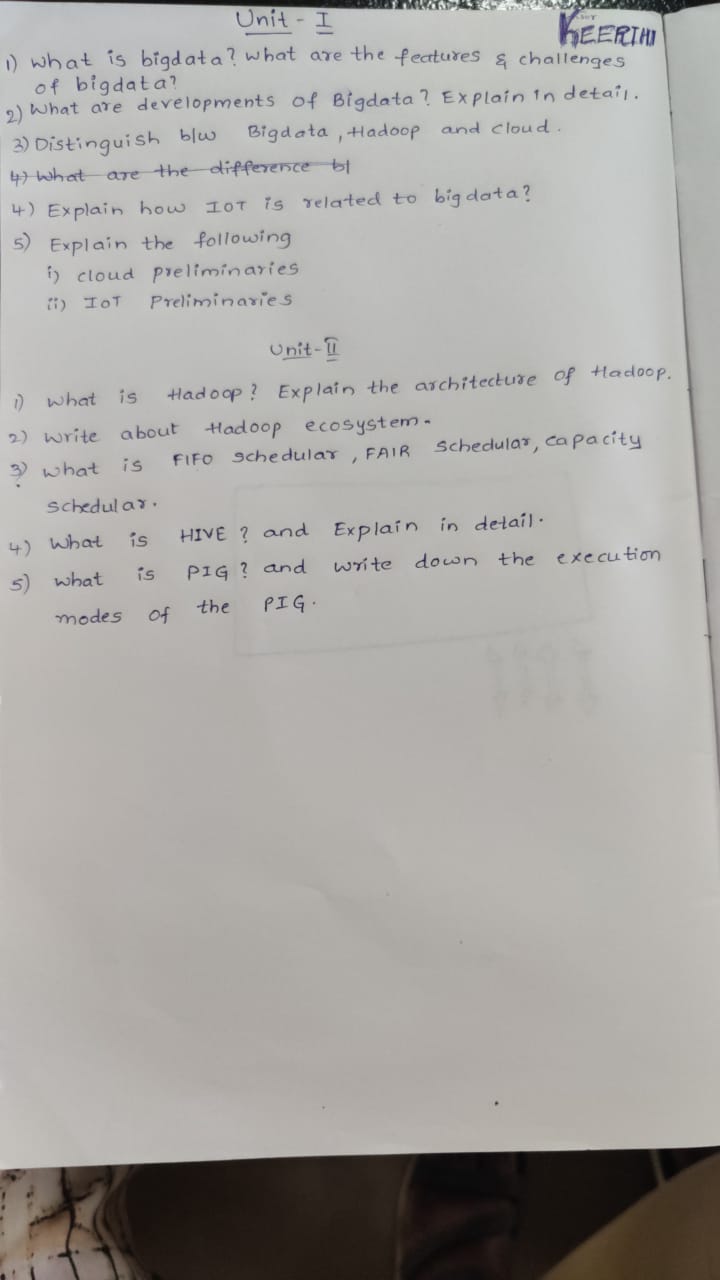 Unit - I
KEERTHI
1) what is bigdata? what are the features & challenges
of bigdata?
2) What are developments of Bigdata? Explain in detail.
3) Distinguish b/w Bigdata, Hadoop and cloud.
4) what are the difference b/
4) Explain how IOT is related to bigdata?
5) Explain the following
i) cloud preliminaries
ii) IOT Preliminaries
Unit-II
1) what is Hadoop? Explain the architecture of Hadoop.
2) write about Hadoop ecosystem.
3) what is FIFO schedular, FAIR schedular, capacity
schedular.
4) What is HIVE? and Explain in detail.
5) what is PIG? and write down the execution
modes of the PIG.